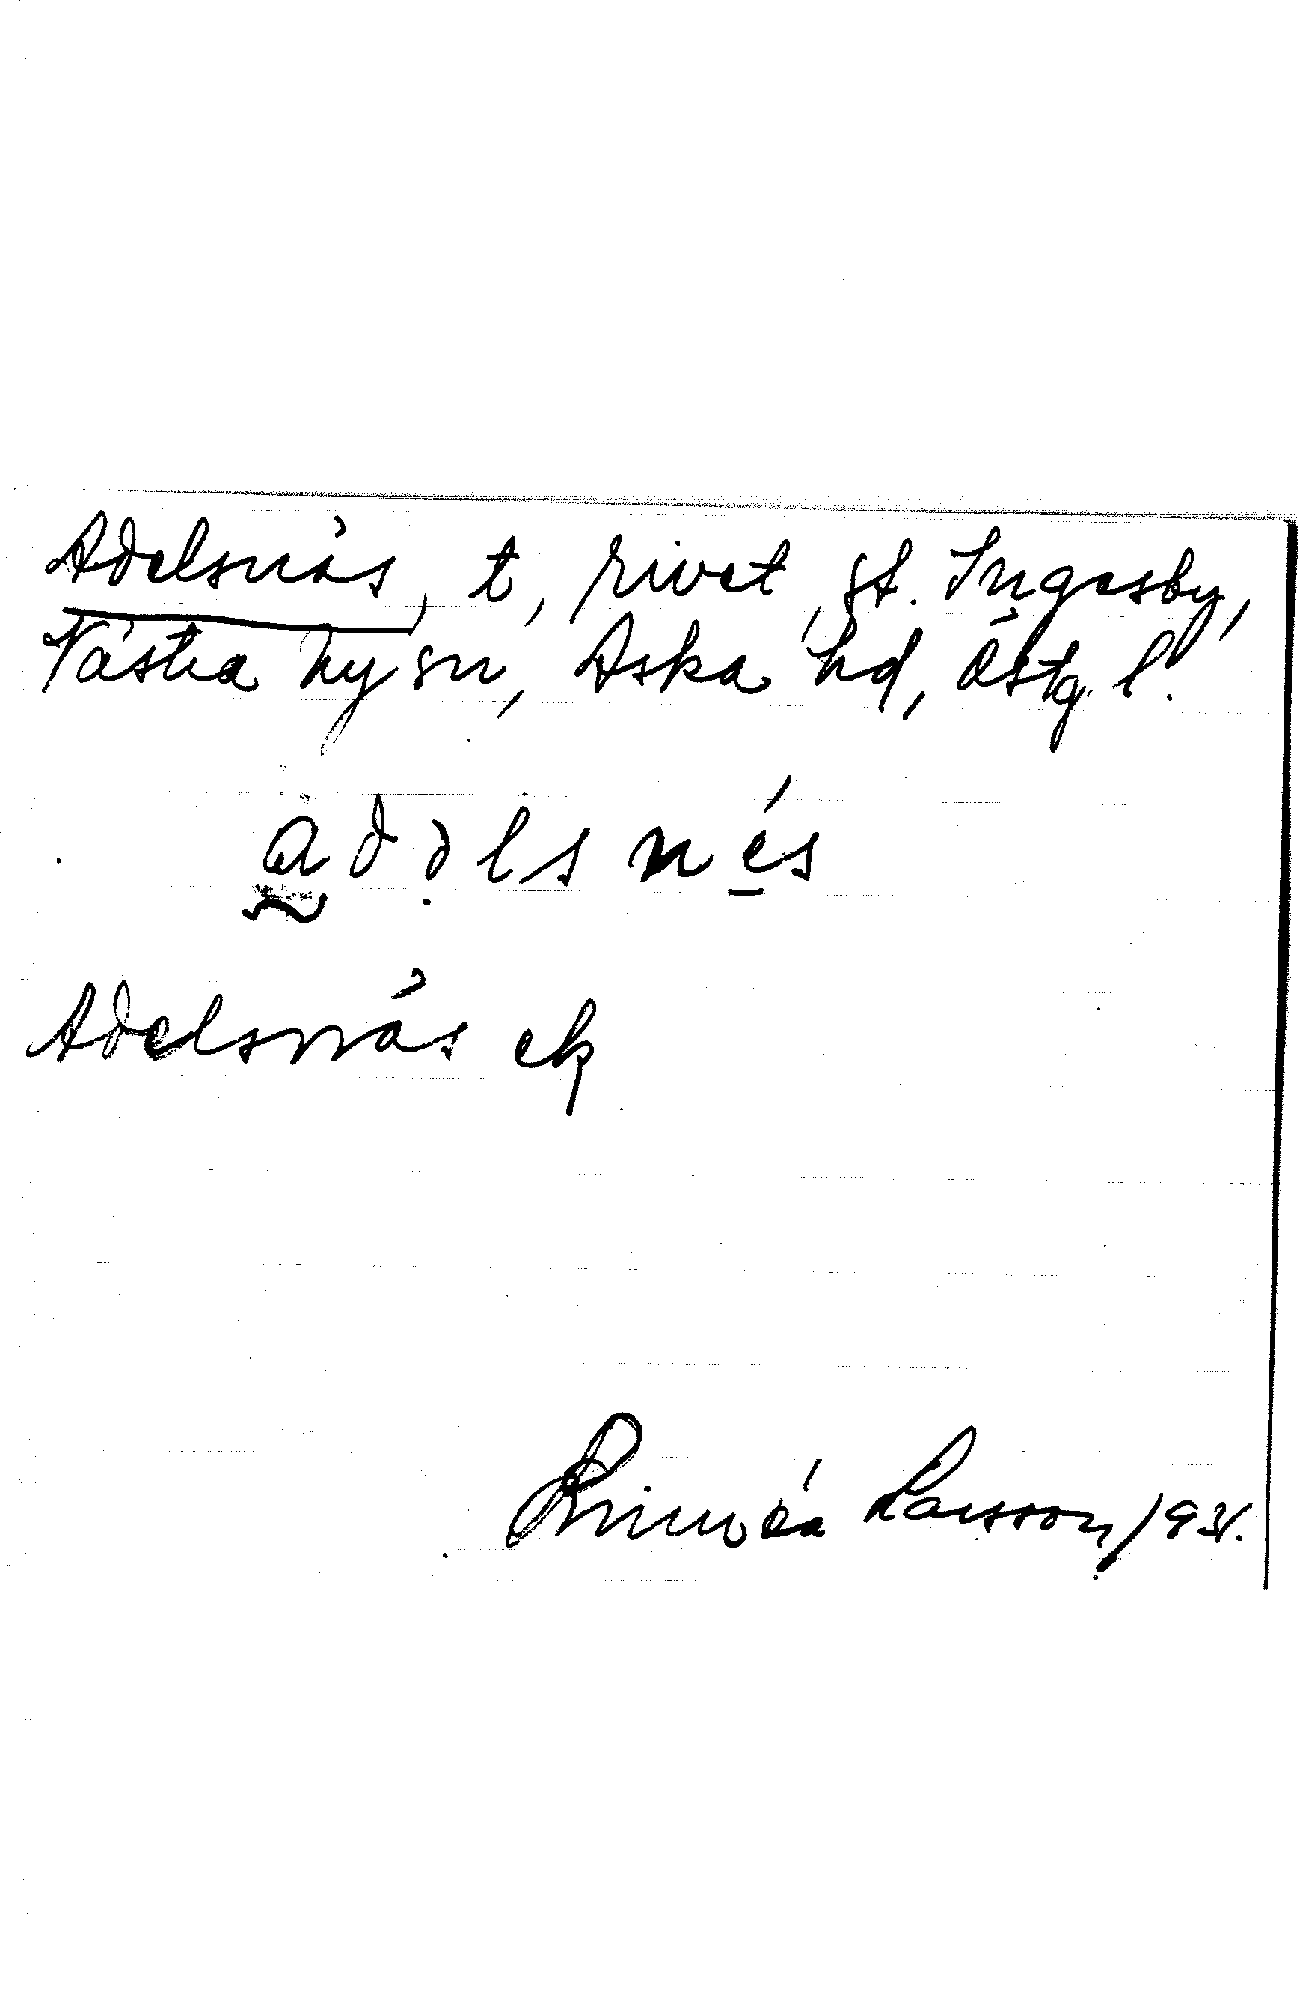 Adelsnäs, t, rivet, gt. Ingesby,
Västra Ny sn, Aska hd, Östg. l.
adəlsnés
Adelsnäs ek
Linnéa Larsson, 1931.